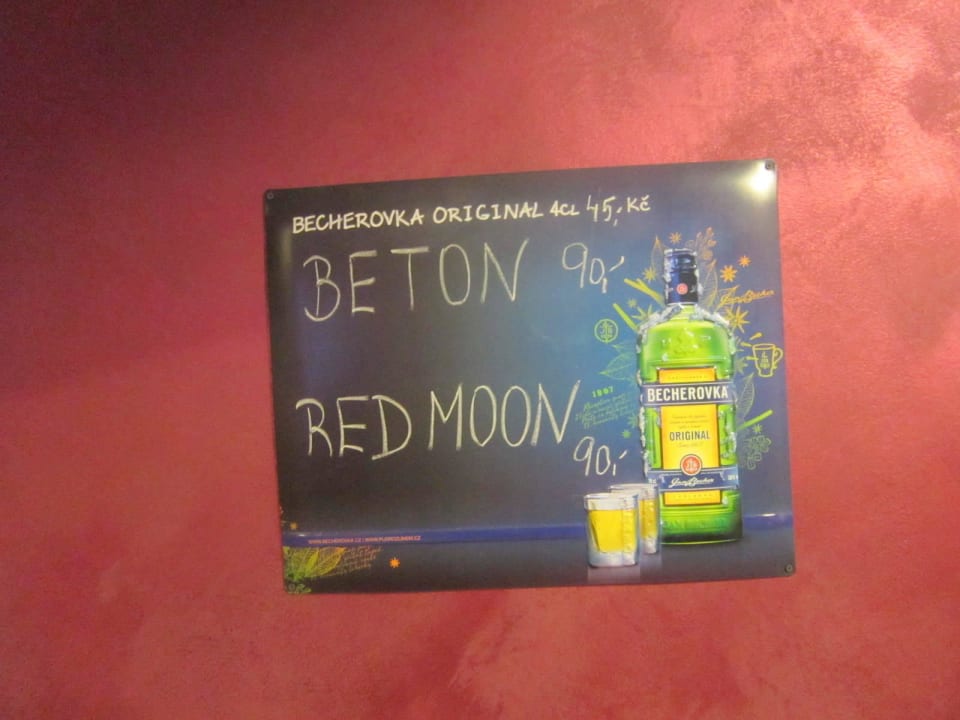 BECHEROVKA ORIGINAL 4CL 45,- Kč
BETON 90,-
RED MOON
90,-
1807
BECHEROVKA
ORIGINAL
Jan Becher
Jan Becher
WWW.BECHEROVKA.CZ